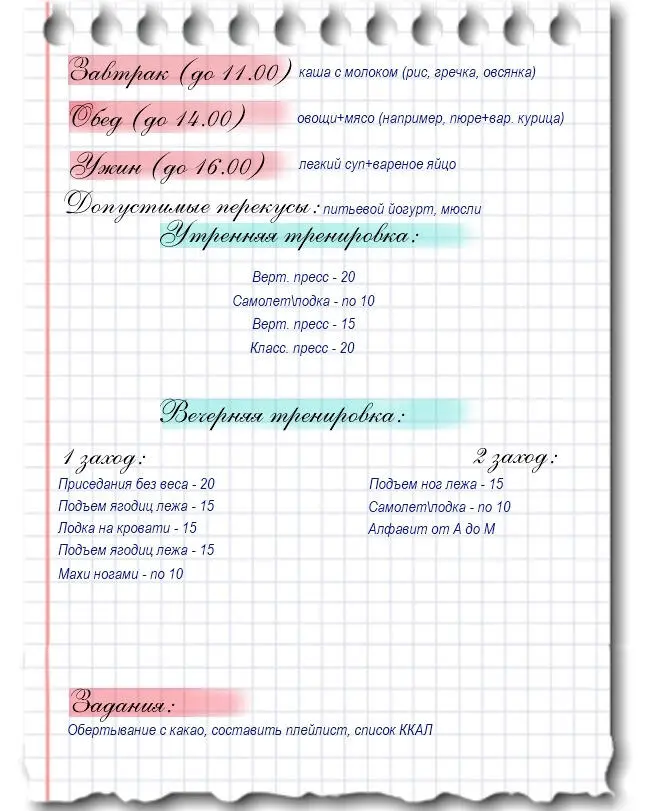 Завтрак (до 11.00) каша с молоком (рис, гречка, овсянка)
Обед (до 14.00) овощи+мясо (например, пюре+вар. курица)
Ужин (до 16.00) легкий суп+вареное яйцо
Допустимые перекусы: питьевой йогурт, мюсли
Утренняя тренировка:
Верт. пресс - 20
Самолет\лодка - по 10
Верт. пресс - 15
Класс. пресс - 20
Вечерняя тренировка:
1 заход:
Приседания без веса - 20
Подъем ягодиц лежа - 15
Лодка на кровати - 15
Подъем ягодиц лежа - 15
Махи ногами - по 10
2 заход:
Подъем ног лежа - 15
Самолет\лодка - по 10
Алфавит от А до М
Задания:
Обертывание с какао, составить плейлист, список ККАЛ